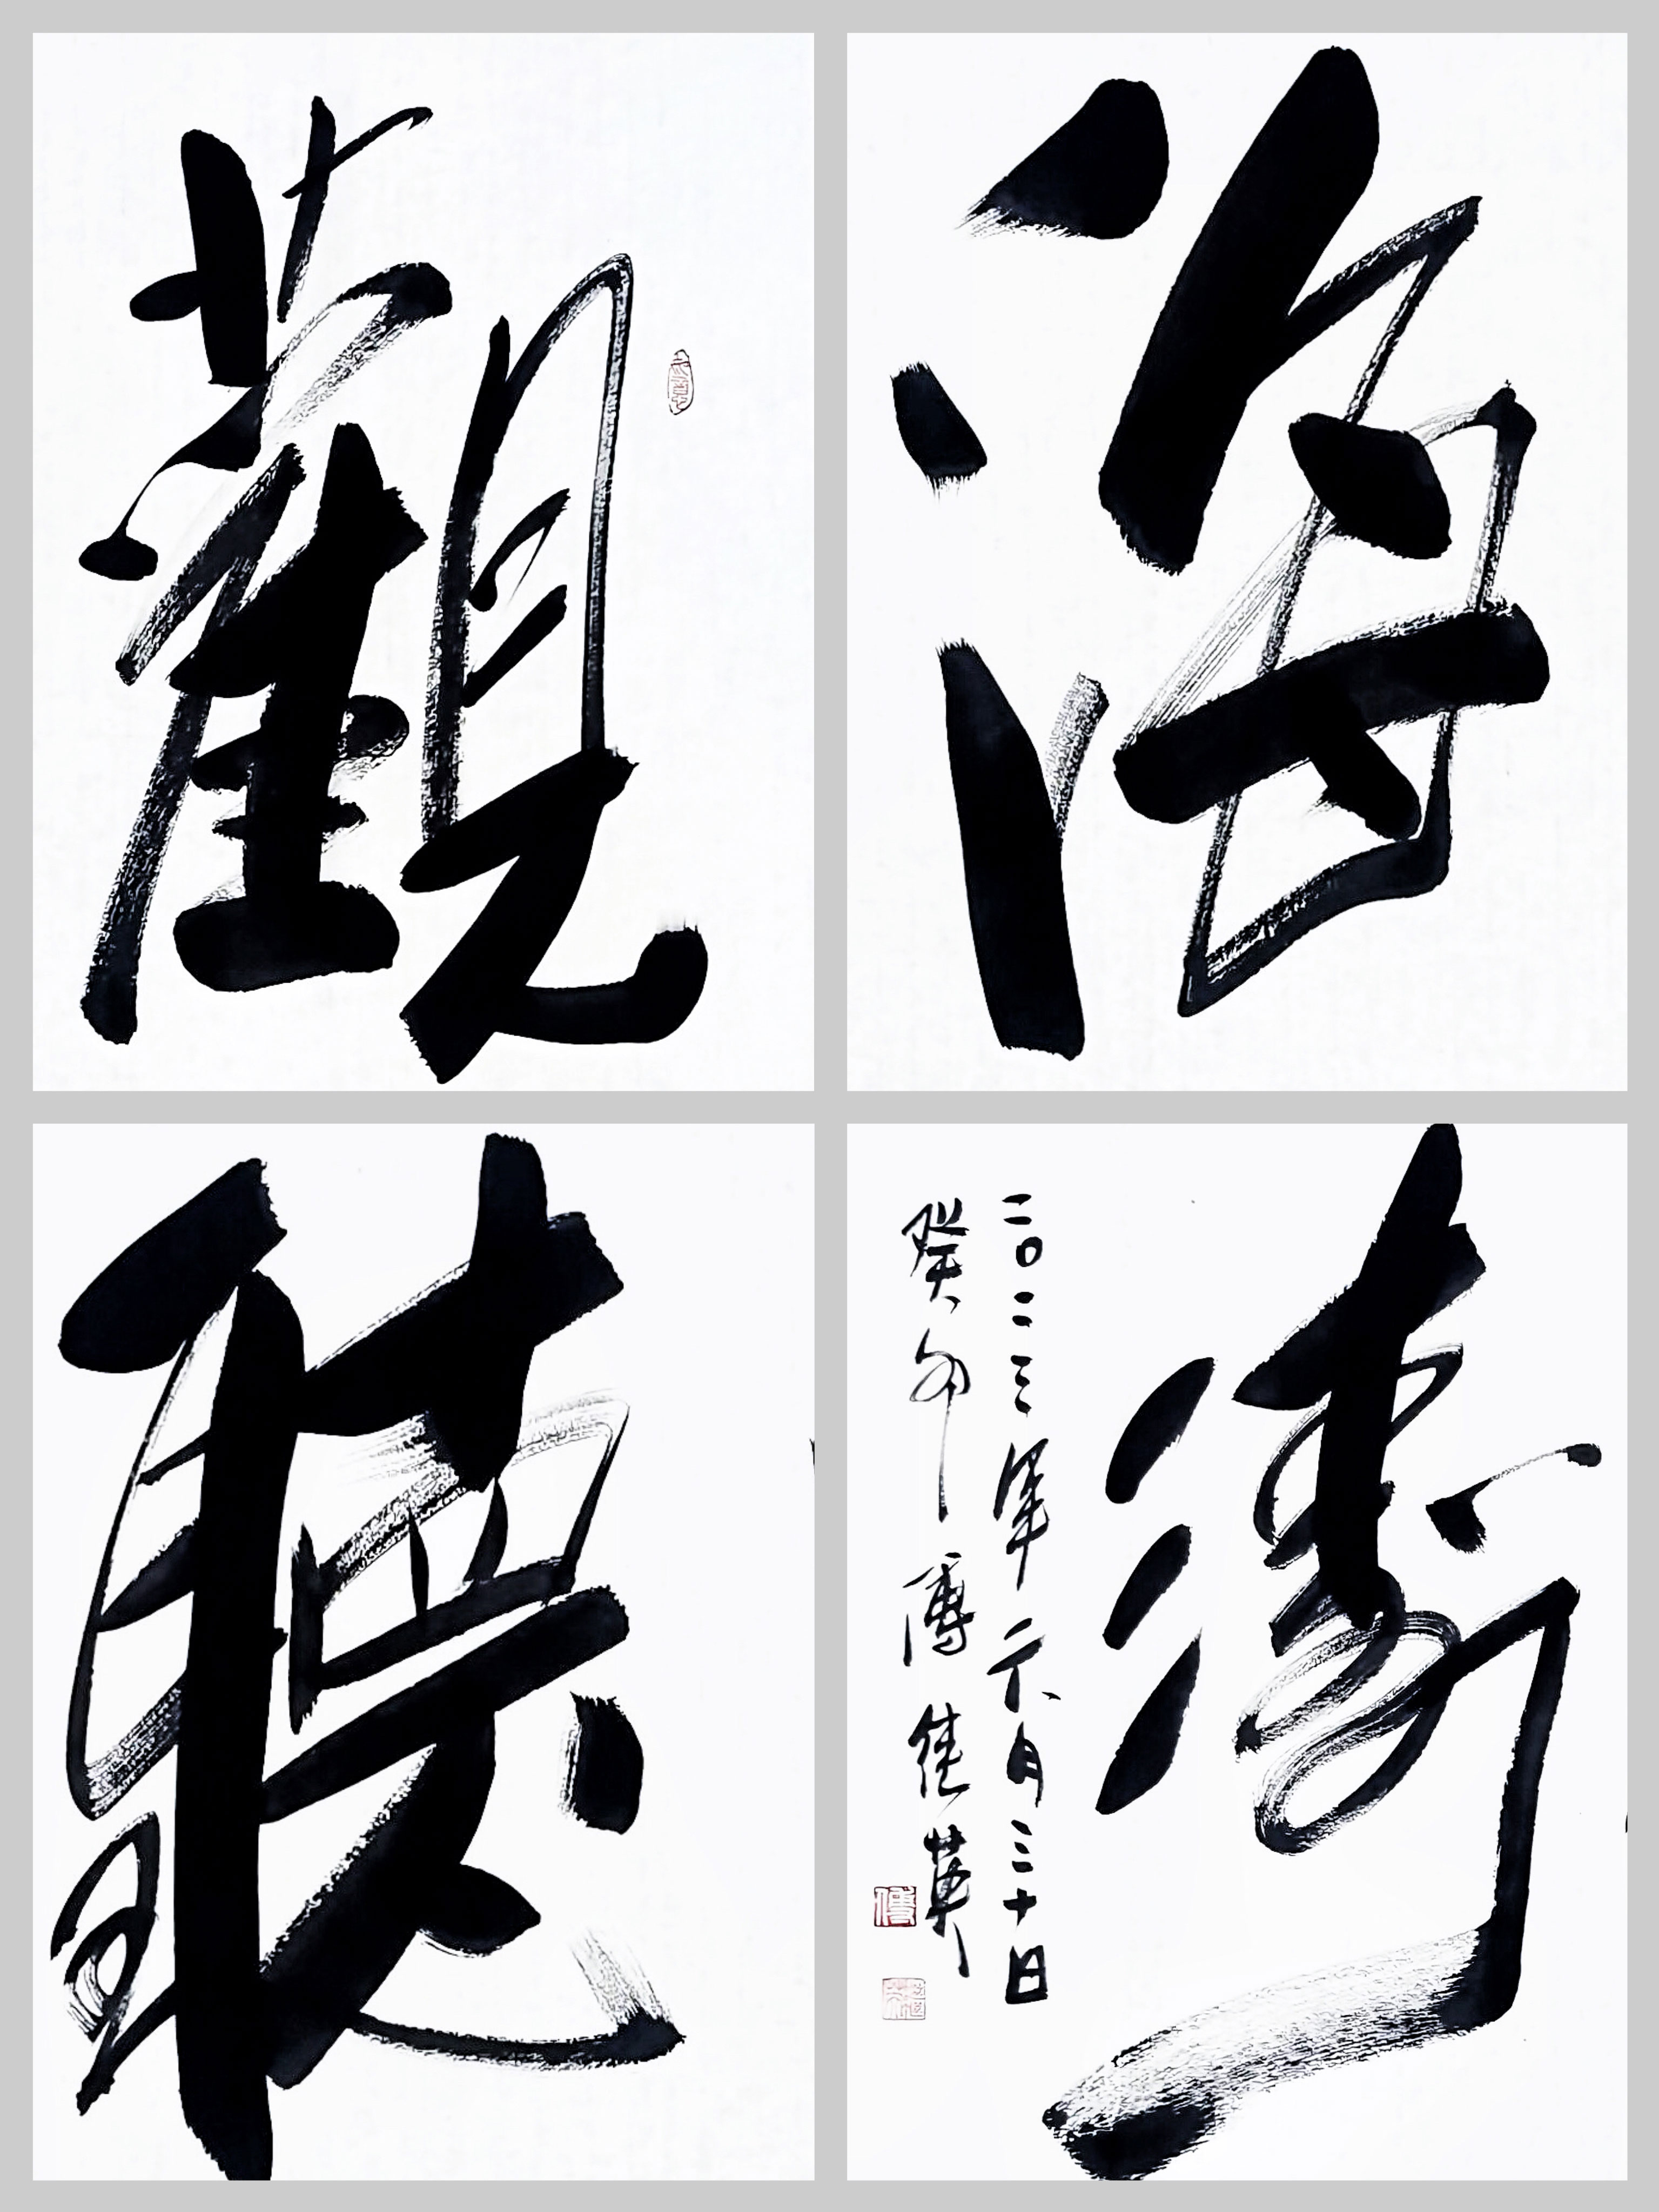 觀
海
聽
濤
二〇二三年六月三十日
癸卯 傅佳華